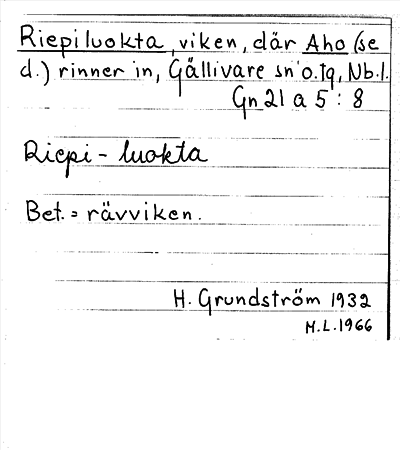 Riepiluokta, viken, där Aho (se
d.) rinner in, Gällivare sn o. tg, Nb. l.
Gn 21 a 5 : 8
Riepi - luokta
Bet. = rävviken.
H. Grundström 1932
M.L. 1966